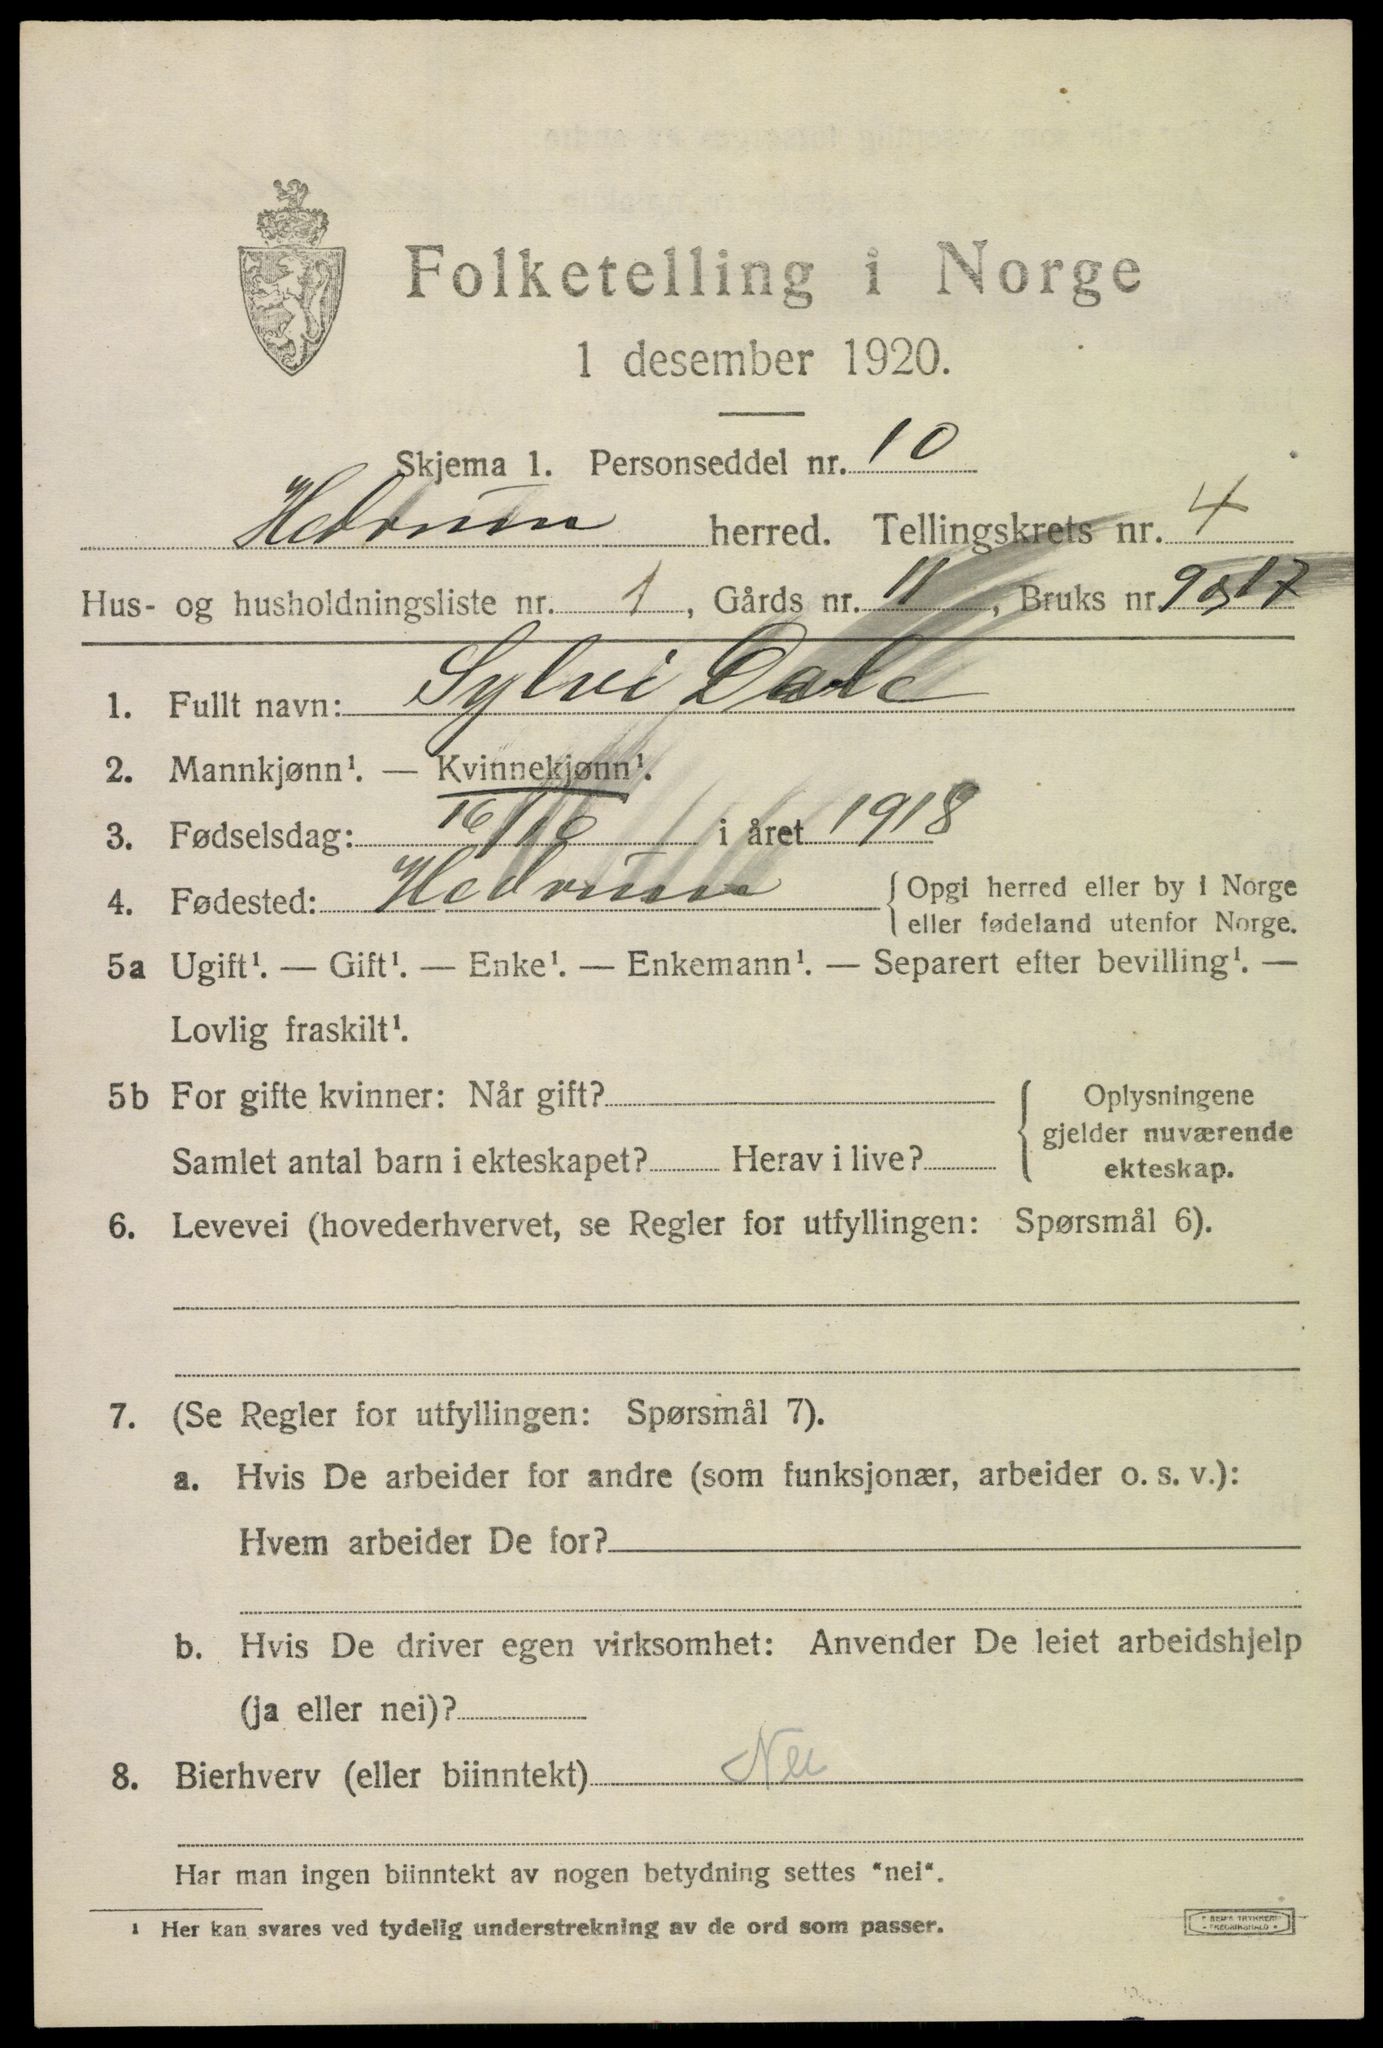 Folketelling i Norge
1 desember 1920.
Skjema 1. Personseddel nr. 10
Hedrum herred. Tellingskrets nr. 4
Hus- og husholdningsliste nr. 1, Gårds nr. 11, Bruks nr. 9 og 17
1. Fullt navn: Sylvi Dale
2. Mannkjønn¹. — Kvinnekjønn¹.
3. Fødselsdag: 16/10 i året 1918
4. Fødested: Hedrum { Opgi herred eller by i Norge
eller fødeland utenfor Norge.
5a Ugift¹. — Gift¹. — Enke¹. — Enkemann¹. — Separert efter bevilling¹. —
Lovlig fraskilt¹.
5b For gifte kvinner: Når gift? { Oplysningene
gjelder nuværende
Samlet antal barn i ekteskapet? Herav i live? ekteskap.
6. Levevei (hovederhvervet, se Regler for utfyllingen: Spørsmål 6).
7. (Se Regler for utfyllingen: Spørsmål 7).
a. Hvis De arbeider for andre (som funksjonær, arbeider o. s. v.):
Hvem arbeider De for?
b. Hvis De driver egen virksomhet: Anvender De leiet arbeidshjelp
(ja eller nei)?
8. Bierhverv (eller biinntekt) Nei
Har man ingen biinntekt av nogen betydning settes "nei".
¹ Her kan svares ved tydelig understrekning av de ord som passer.
TRYKKERI
FREDRIKSHALD